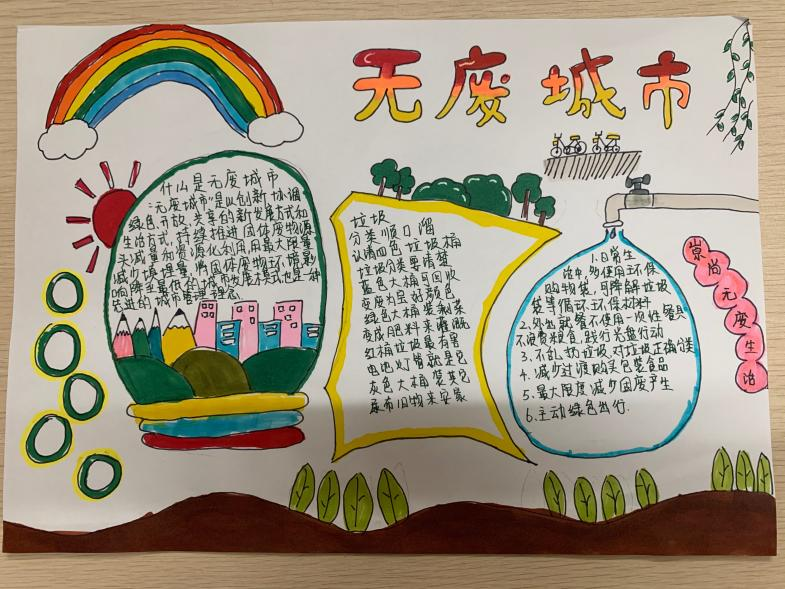 无废城市
什么是无废城市
"无废城市"是以创新、协调
绿色、开放、共享的新发展方式和
生活方式,持续推进固体废物源
头减量和资源化利用,最大限度
减少填埋量,将固体废物环境影
响降至最低的城市发展模式,也是一种
先进的城市管理理念
垃圾
分类顺口溜
认清四色垃圾桶
垃圾分类要清楚
蓝色大桶可回收
变废为宝好颜色
绿色大桶装剩菜
变成肥料来灌溉
红桶垃圾最有害
电池灯管就是它
灰色大桶装其它
尿布旧物来安家
1.日常生
活中,多使用环保
购物袋,可降解垃圾
袋等循环环保材料
2.外出就餐不使用一次性餐具
不浪费粮食,践行光盘行动
3.不乱扔垃圾,对垃圾正确分类
4.减少过渡购买包装食品
5.最大限度减少固废产生
6.主动绿色出行.
崇尚无废生活